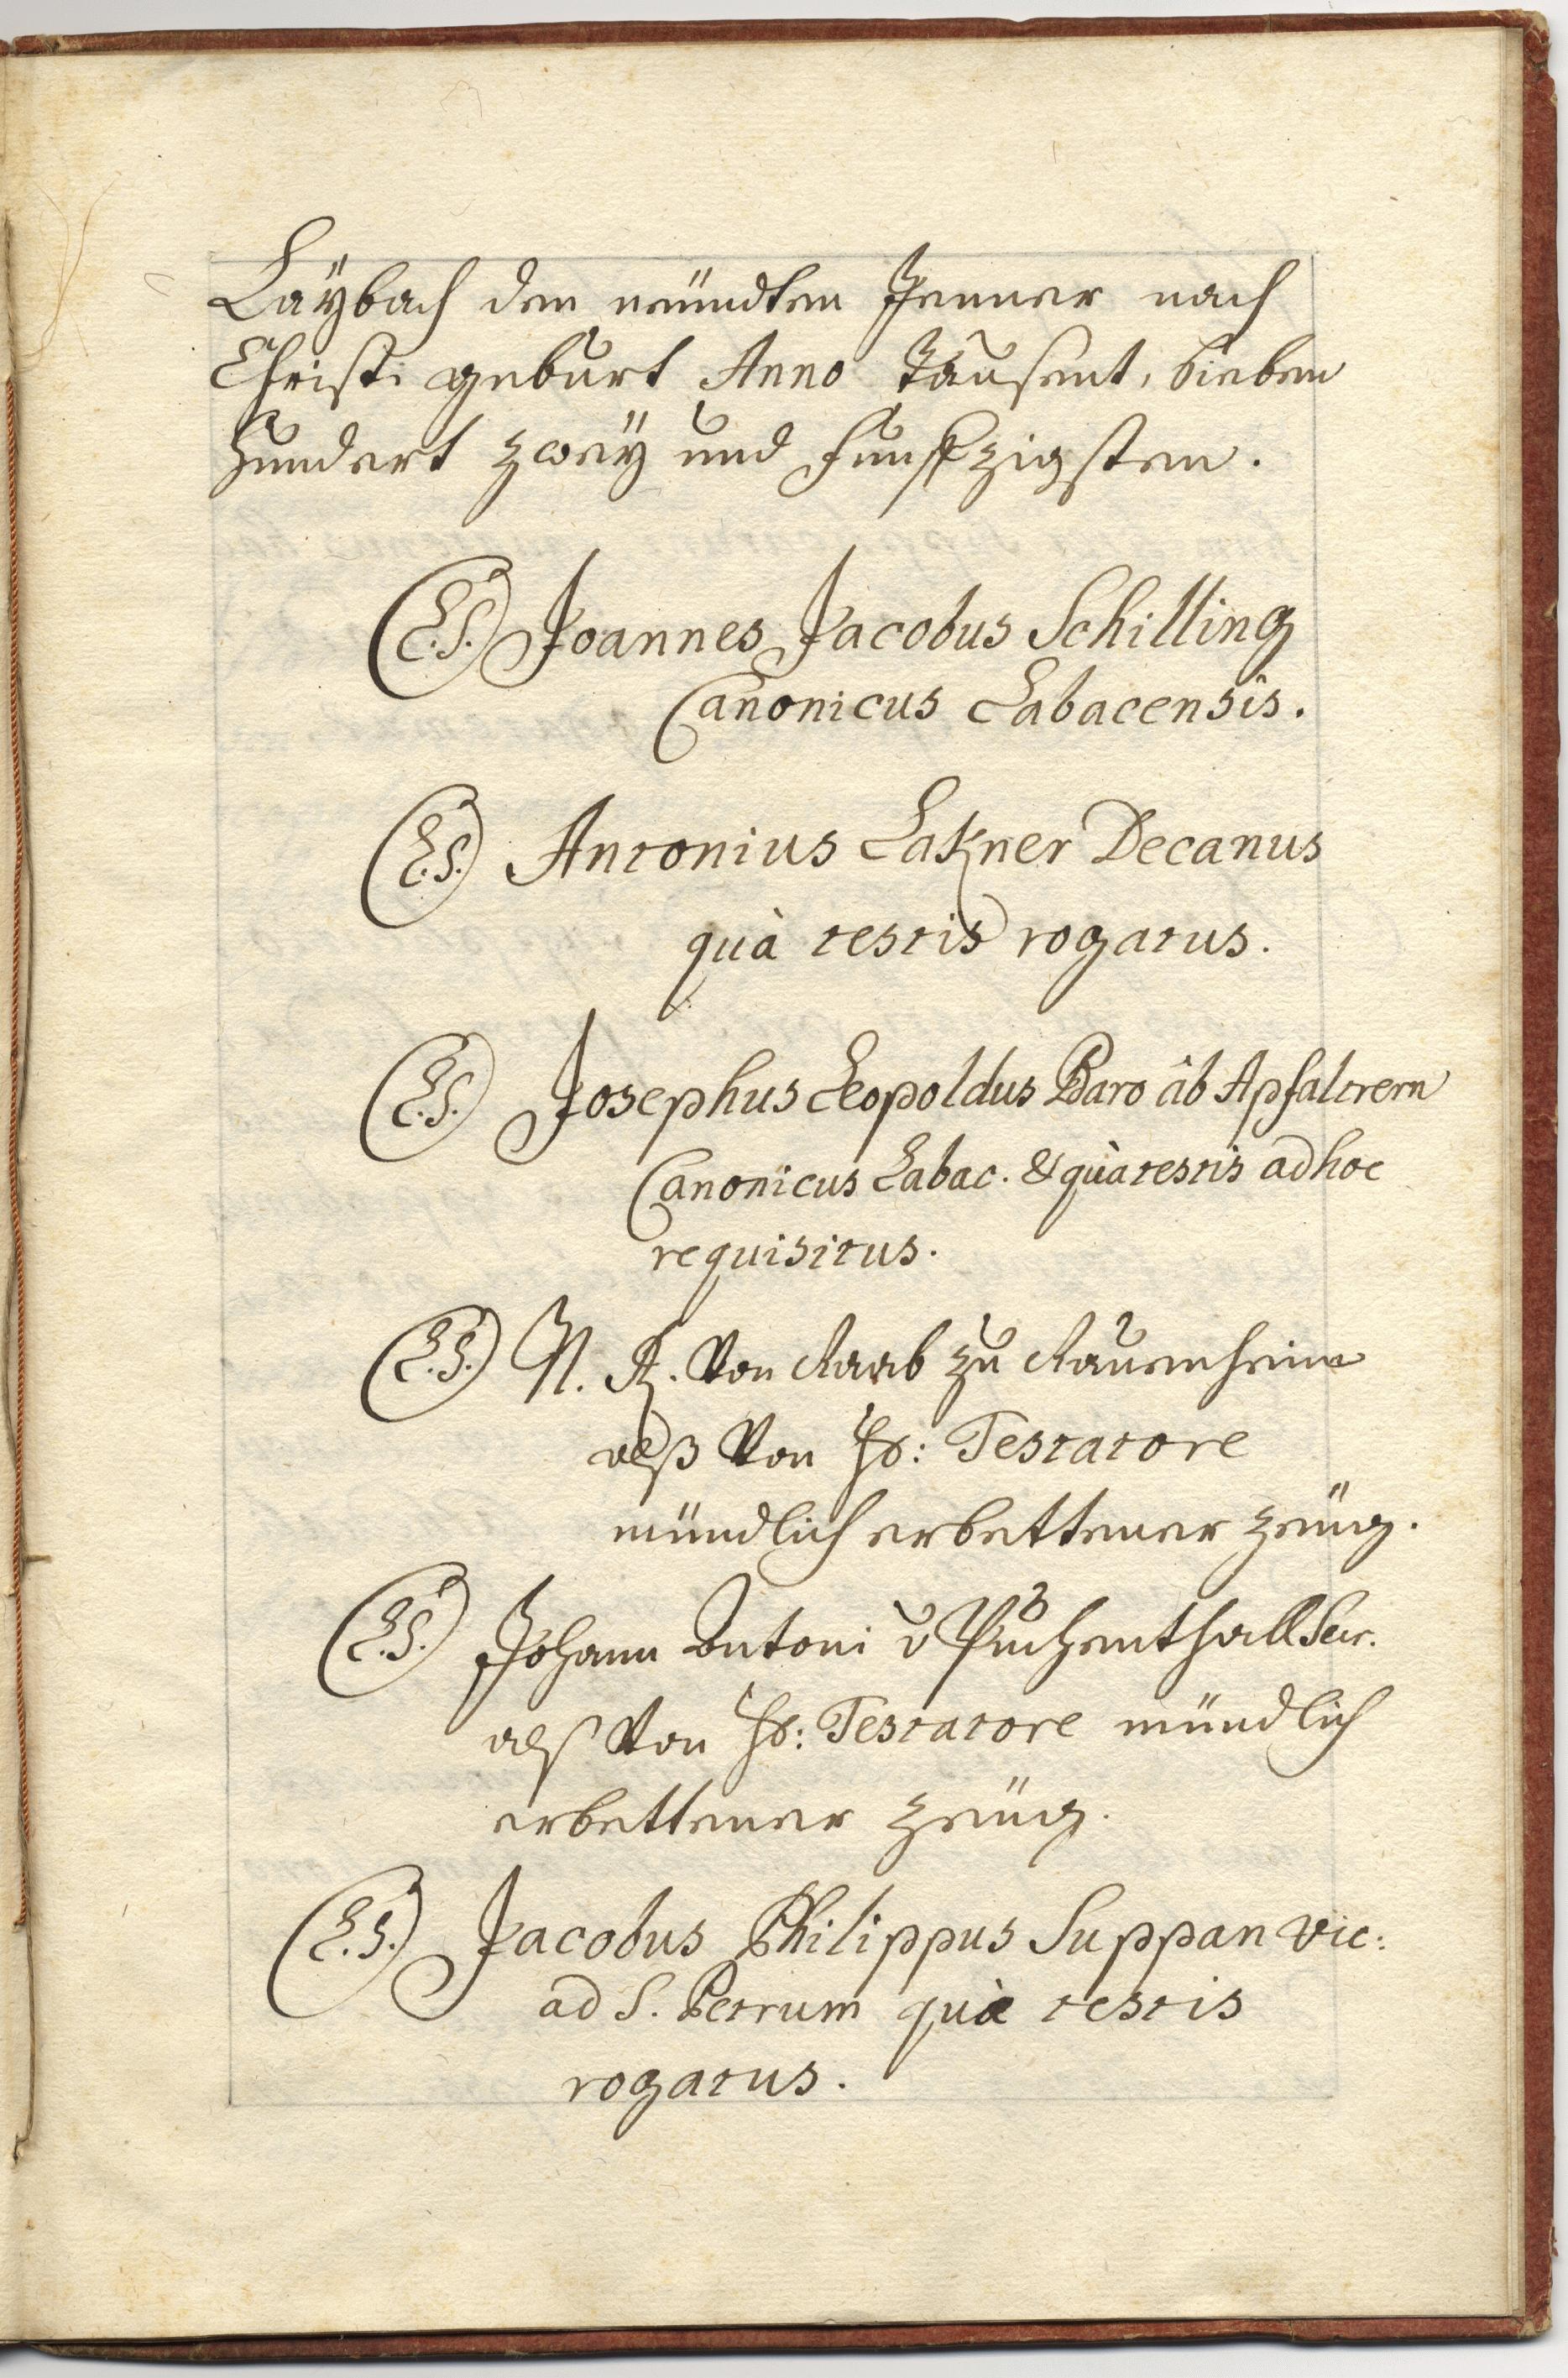 Laÿbach den neündten Jenner nach
Christi geburt Anno Tausent, sieben
hundert zweÿ und funfzigsten.
(L.S.) Joannes Jacobus Schilling
Canonicus Labacensis.
(L.S.) Antonius Lakner Decanus
quà testis rogatus.
(L.S.) Josephus Leopoldus Baro ab Apfaltrern
Canonicus Labac. & quà testis ad hoc
requisitus.
(L.S.) N. R. Von Raab zu Rauenheim
alß Von H: Testatore
mündlich erbettener zeüg.
(L.S.) Johann Antoni v Puchenthall
alß Von H: Testatore mündlich
erbettener zeüg.
(L.S.) Jacobus Philippus Suppan vic:
ad S. Petrum quà testis
rogatus.